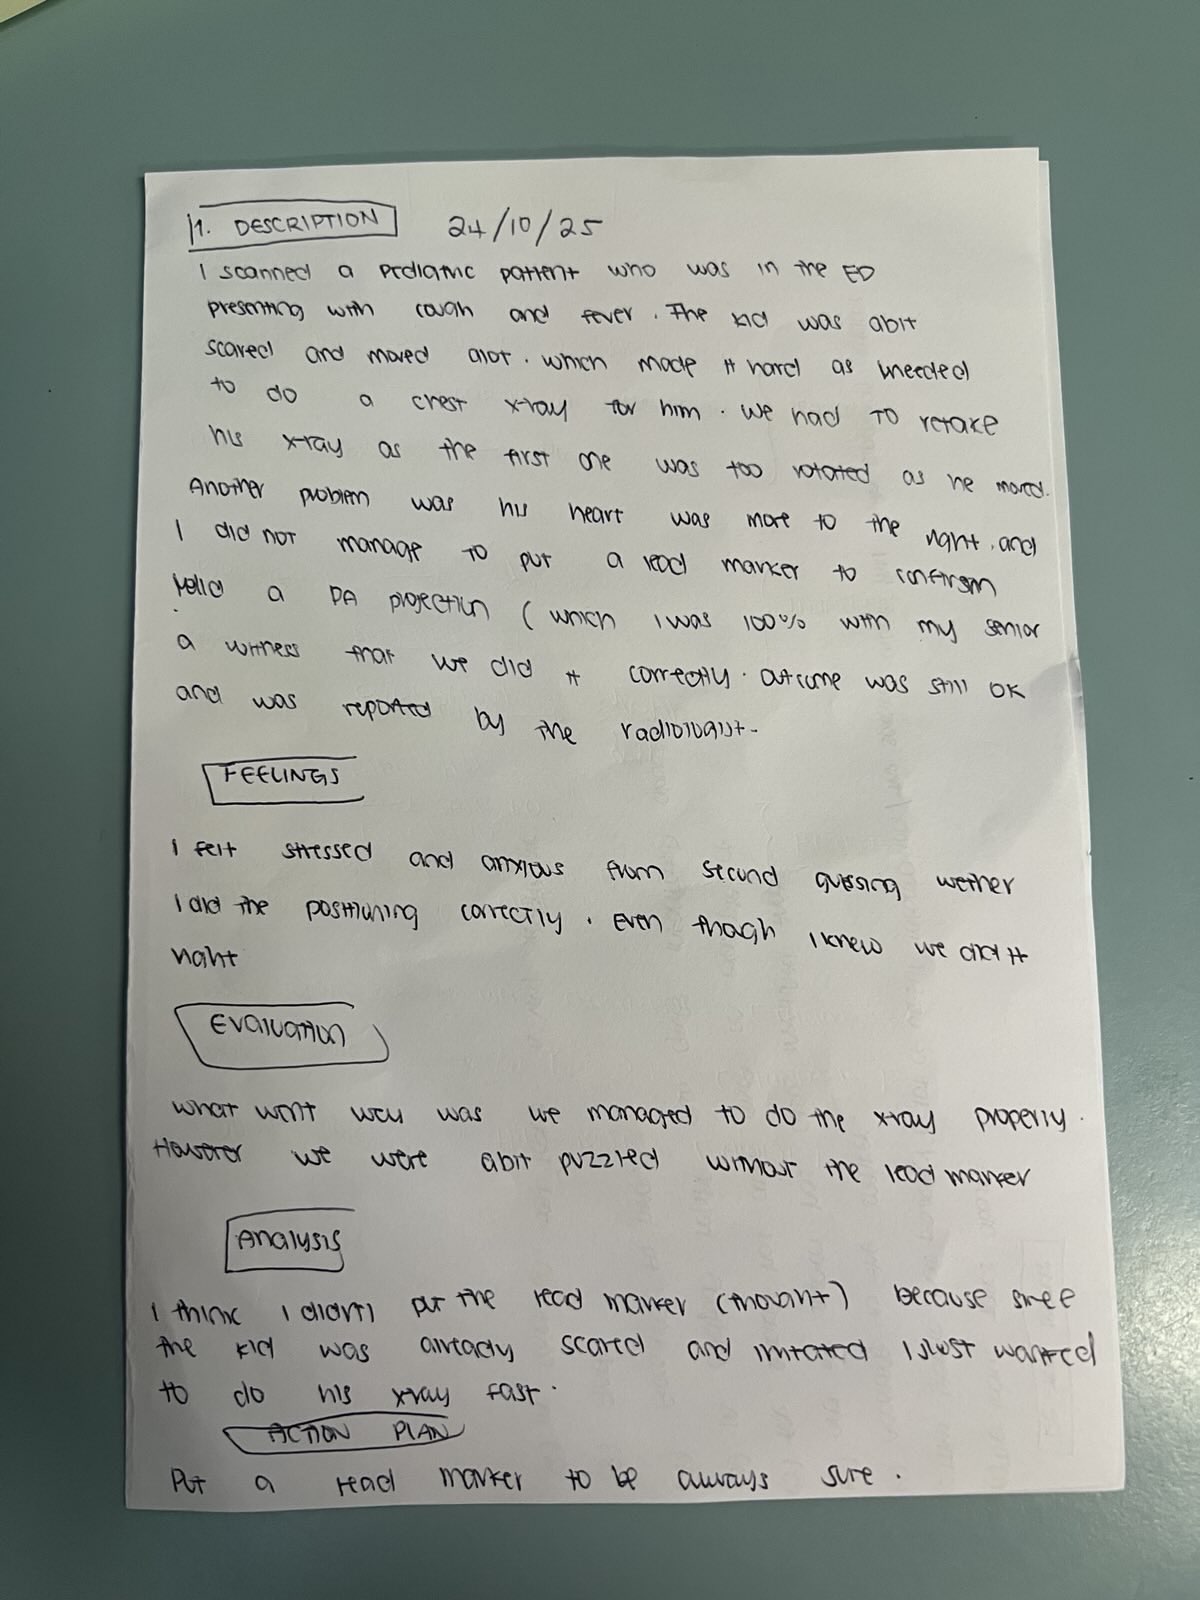 1. DESCRIPTION 24/10/25
I scanned a pediatric patient who was in the ED
presenting with cough and fever. The kid was abit
scared and moved alot. which made it hard as I needed
to do a chest x-ray for him. We had to retake
his x-ray as the first one was too rotated as he moved.
Another problem was his heart was more to the right. and
I did not manage to put a lead marker to confirm
I did a PA projection (which I was 100% with my senior
a witness that we did it correctly. outcome was still OK
and was reported by the radiologist.
FEELINGS
I felt stressed and anxious from second guessing wether
I did the positioning correctly. Even though I knew we did it
right
Evaluation
what went well was we managed to do the xray properly.
However we were abit puzzled without the lead marker
Analysis
I think I didn't put the lead marker (thought) because since
the kid was already scared and irritated I just wanted
to do his xray fast.
ACTION PLAN
Put a lead marker to be always sure.